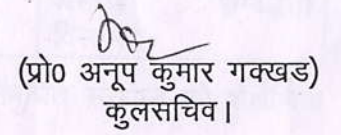 (प्रो० अनूप कुमार गक्खड)
कुलसचिव।